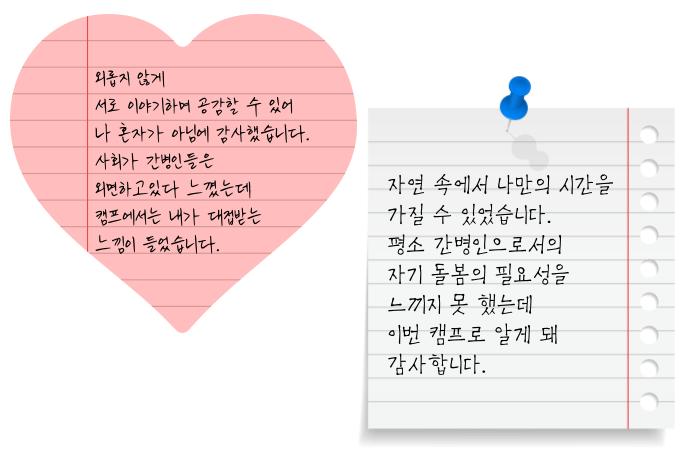 외롭지 않게
서로 이야기하며 공감할 수 있어
나 혼자가 아님에 감사했습니다.
사회가 간병인들은
외면하고있다 느꼈는데
캠프에서는 내가 대접받는
느낌이 들었습니다.
자연 속에서 나만의 시간을
가질 수 있었습니다.
평소 간병인으로서의
자기 돌봄의 필요성을
느끼지 못 했는데
이번 캠프로 알게 돼
감사합니다.